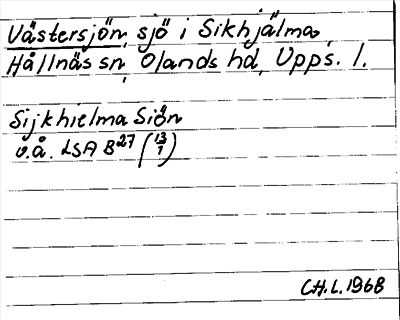 Västersjön, sjö i Sikhjälma,
Hållnäs sn, Olands hd, Upps. l.
Sijkhielma Siön
u.å. LSA B27 (13/1)
C.H.L. 1968